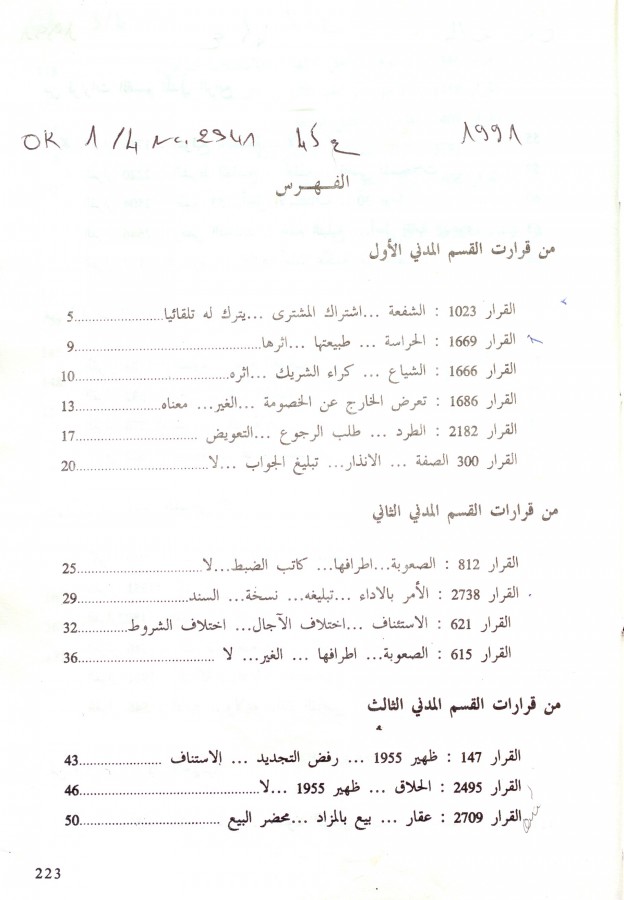 OK 1/4 Nc. 2941 45 ج 1991
الفـهـرس
من قرارت القسم المدني الأول
القرار 1023 : الشفعة ...اشتراك المشترى ...يترك له تلقائيا......................5
القرار 1669 : الحراسة ... طبيعتها ...اثرها.............................................9
القرار 1666 : الشياع ... كراء الشريك ...اثره......................................10
القرار 1686 : تعرض الخارج عن الخصومة ...الغير... معناه .................13
القرار 2182 : الطرد ... طلب الرجوع ...التعويض .............................17
القرار 300 الصفة ... الانذار... تبليغ الجواب ...لا.................................20
من قرارات القسم المدني الثاني
القرار 812 : الصعوبة...اطرافها... كاتب الضبط...لا...............................25
القرار 2738 : الأمر بالاداء ...تبليغه... نسخة... السند............................29
القرار 621 : الاستئناف ...اختلاف الآجال... اختلاف الشروط............32
القرار 615 : الصعوبة... اطرافها ... الغير... لا ..................................36
من قرارات القسم المدني الثالث
القرار 147 : ظهير 1955 ... رفض التجديد ... الاستناف ....................43
القرار 2495 : الحلاق ... ظهير 1955 ...لا............................................46
القرار 2709 : عقار ... بيع بالمزاد ...محضر البيع ..................................50
223